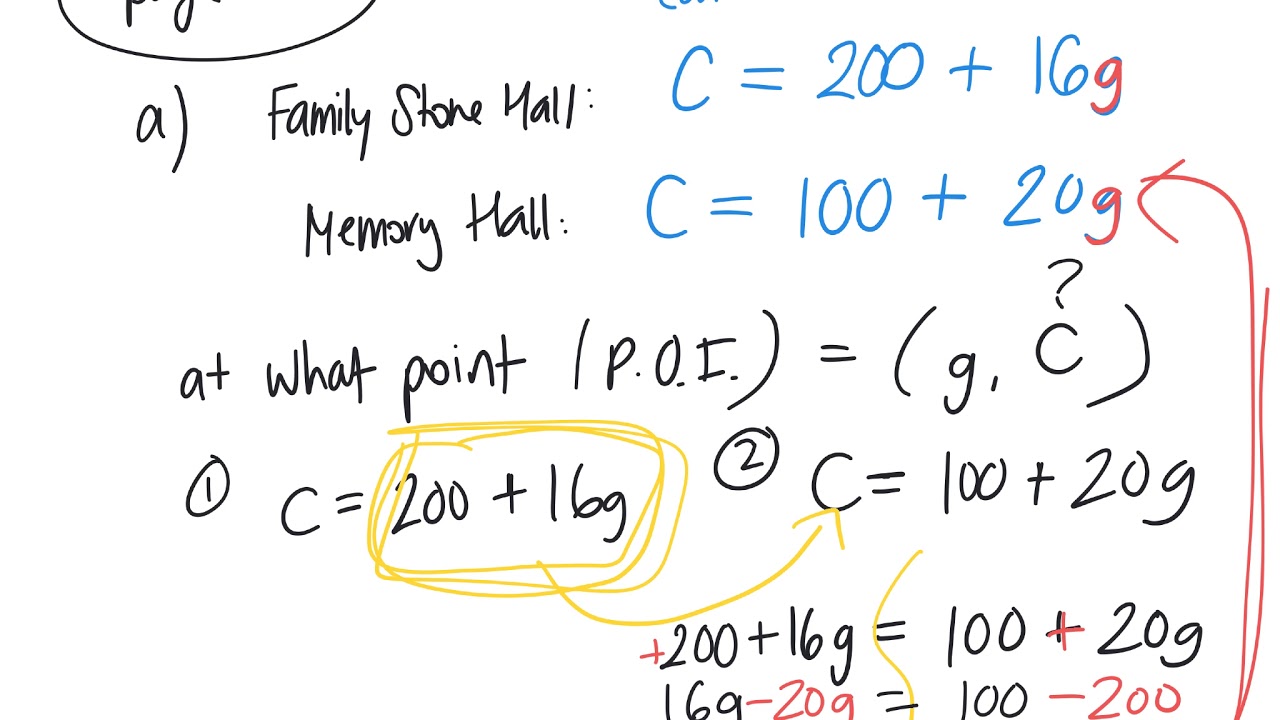 a) Family Stone Hall: C = 200 + 16g
Memory Hall: C = 100 + 20g
?
at what point (P.O.I.) = (g, C)
① C = 200 + 16g ② C = 100 + 20g
+200 + 16g = 100 + 20g
16g - 20g = 100 - 200